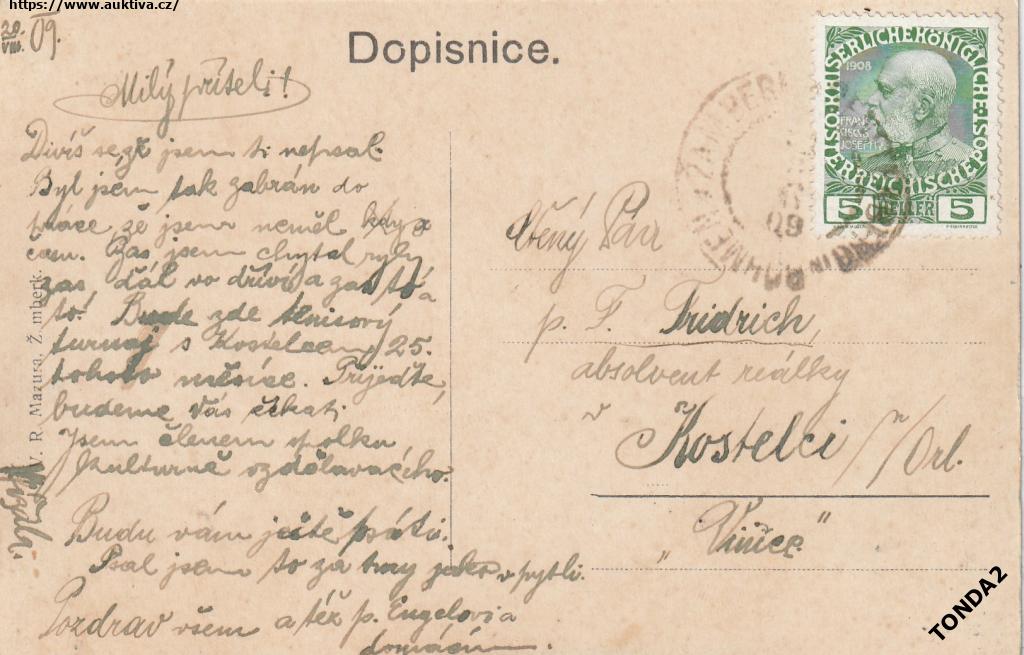 https://www.auktiva.cz/
20. VIII. 09.
Dopisnice.
Milý příteli!
Divíš se, že jsem ti nepsal.
Byl jsem tak zabrán do
práce že jsem neměl kdy a
čas. Čas jsem chytal ryby
zas dál vo dříví a zas to a
to. Bude zde tenisový
turnaj s Kostelcem, 25.
tohoto měsíce. Přijeďte,
budeme Vás čekati.
Jsem členem spolku
kulturně vzdělavacího.
Budu vám ještě psáti.
Psal jsem to za tmy jako v pytli.
Pozdrav všem a též p. Engelovi a
domácím.
V. R. Mazura, Ž mberk.
KAISERLICHE KÖNIGLICHE
ÖSTERREICHISCHE POST
1908
FRANCISCUS JOSEPH I
5 HELLER 5
Ctěný Pán
p. F. Fridrich,
absolvent reálky
v
Kostelci n/Orl.
„Vinice"
TONDA2